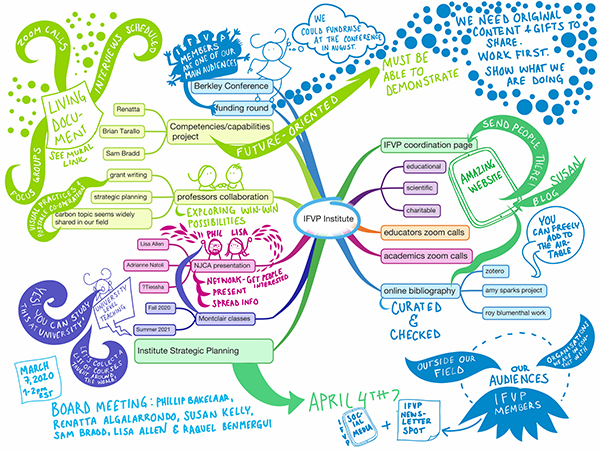 ZOOM CALLS
INTERVIEWS SCHEDULED
FOCUS GROUPS
VISUAL PRACTICES
POSSIBLE CO-OPERATION
LIVING
DOCU-
MENT
SEE MURAL
LINK
IFVP
MEMBERS
ARE ONE OF OUR
MAIN AUDIENCES
WE
COULD FUNDRAISE
AT THE CONFERENCE
IN AUGUST.
WE NEED ORIGINAL
CONTENT & GIFTS TO
SHARE.
WORK FIRST.
SHOW WHAT WE
ARE DOING
FUTURE-ORIENTED
MUST BE
ABLE TO
DEMONSTRATE
Berkley Conference
funding round
Renatta
Brian Tarallo
Sam Bradd
Competencies/capabilities
project
grant writing
strategic planning
carbon topic seems widely
shared in our field
professors collaboration
EXPLORING WIN-WIN
POSSIBILITIES
IFVP Institute
IFVP coordination page
educational
scientific
charitable
SEND PEOPLE THERE!
AMAZING
WEBSITE
SUSAN
BLOG
educators zoom calls
academics zoom calls
YOU
CAN FREELY
ADD TO
THE AIR-
TABLE
online bibliography
CURATED
&
CHECKED
zotero
amy sparks project
roy blumenthal work
PHIL LISA
Lisa Allen
Adrianne Natoli
?Tiessha
NJCA presentation
NETWORK-GET PEOPLE
INTERESTED
PRESENT
SPREAD INFO
Fall 2020
Summer 2021
Montclair classes
UNIVERSITY
LEVEL
TEACHING
YES! YOU CAN STUDY
THIS AT UNIVERSITY!
LET'S COLLECT A
LIST OF COURSES
THERE AROUND
THE WORLD!
Institute Strategic Planning
MARCH
7, 2020
1-2pm
EST
BOARD MEETING: PHILLIP BAKELAAR,
RENATTA ALGALARRONDO, SUSAN KELLY,
SAM BRADD, LISA ALLEN & RAQUEL BENMERGUI
APRIL 4TH?
IFVP
SOCIAL
MEDIA
+
IFVP
NEWS-
LETTER
SPOT
OUTSIDE OUR
FIELD
ORGANISATIONS
OUR
AUDIENCES
IFVP
MEMBERS